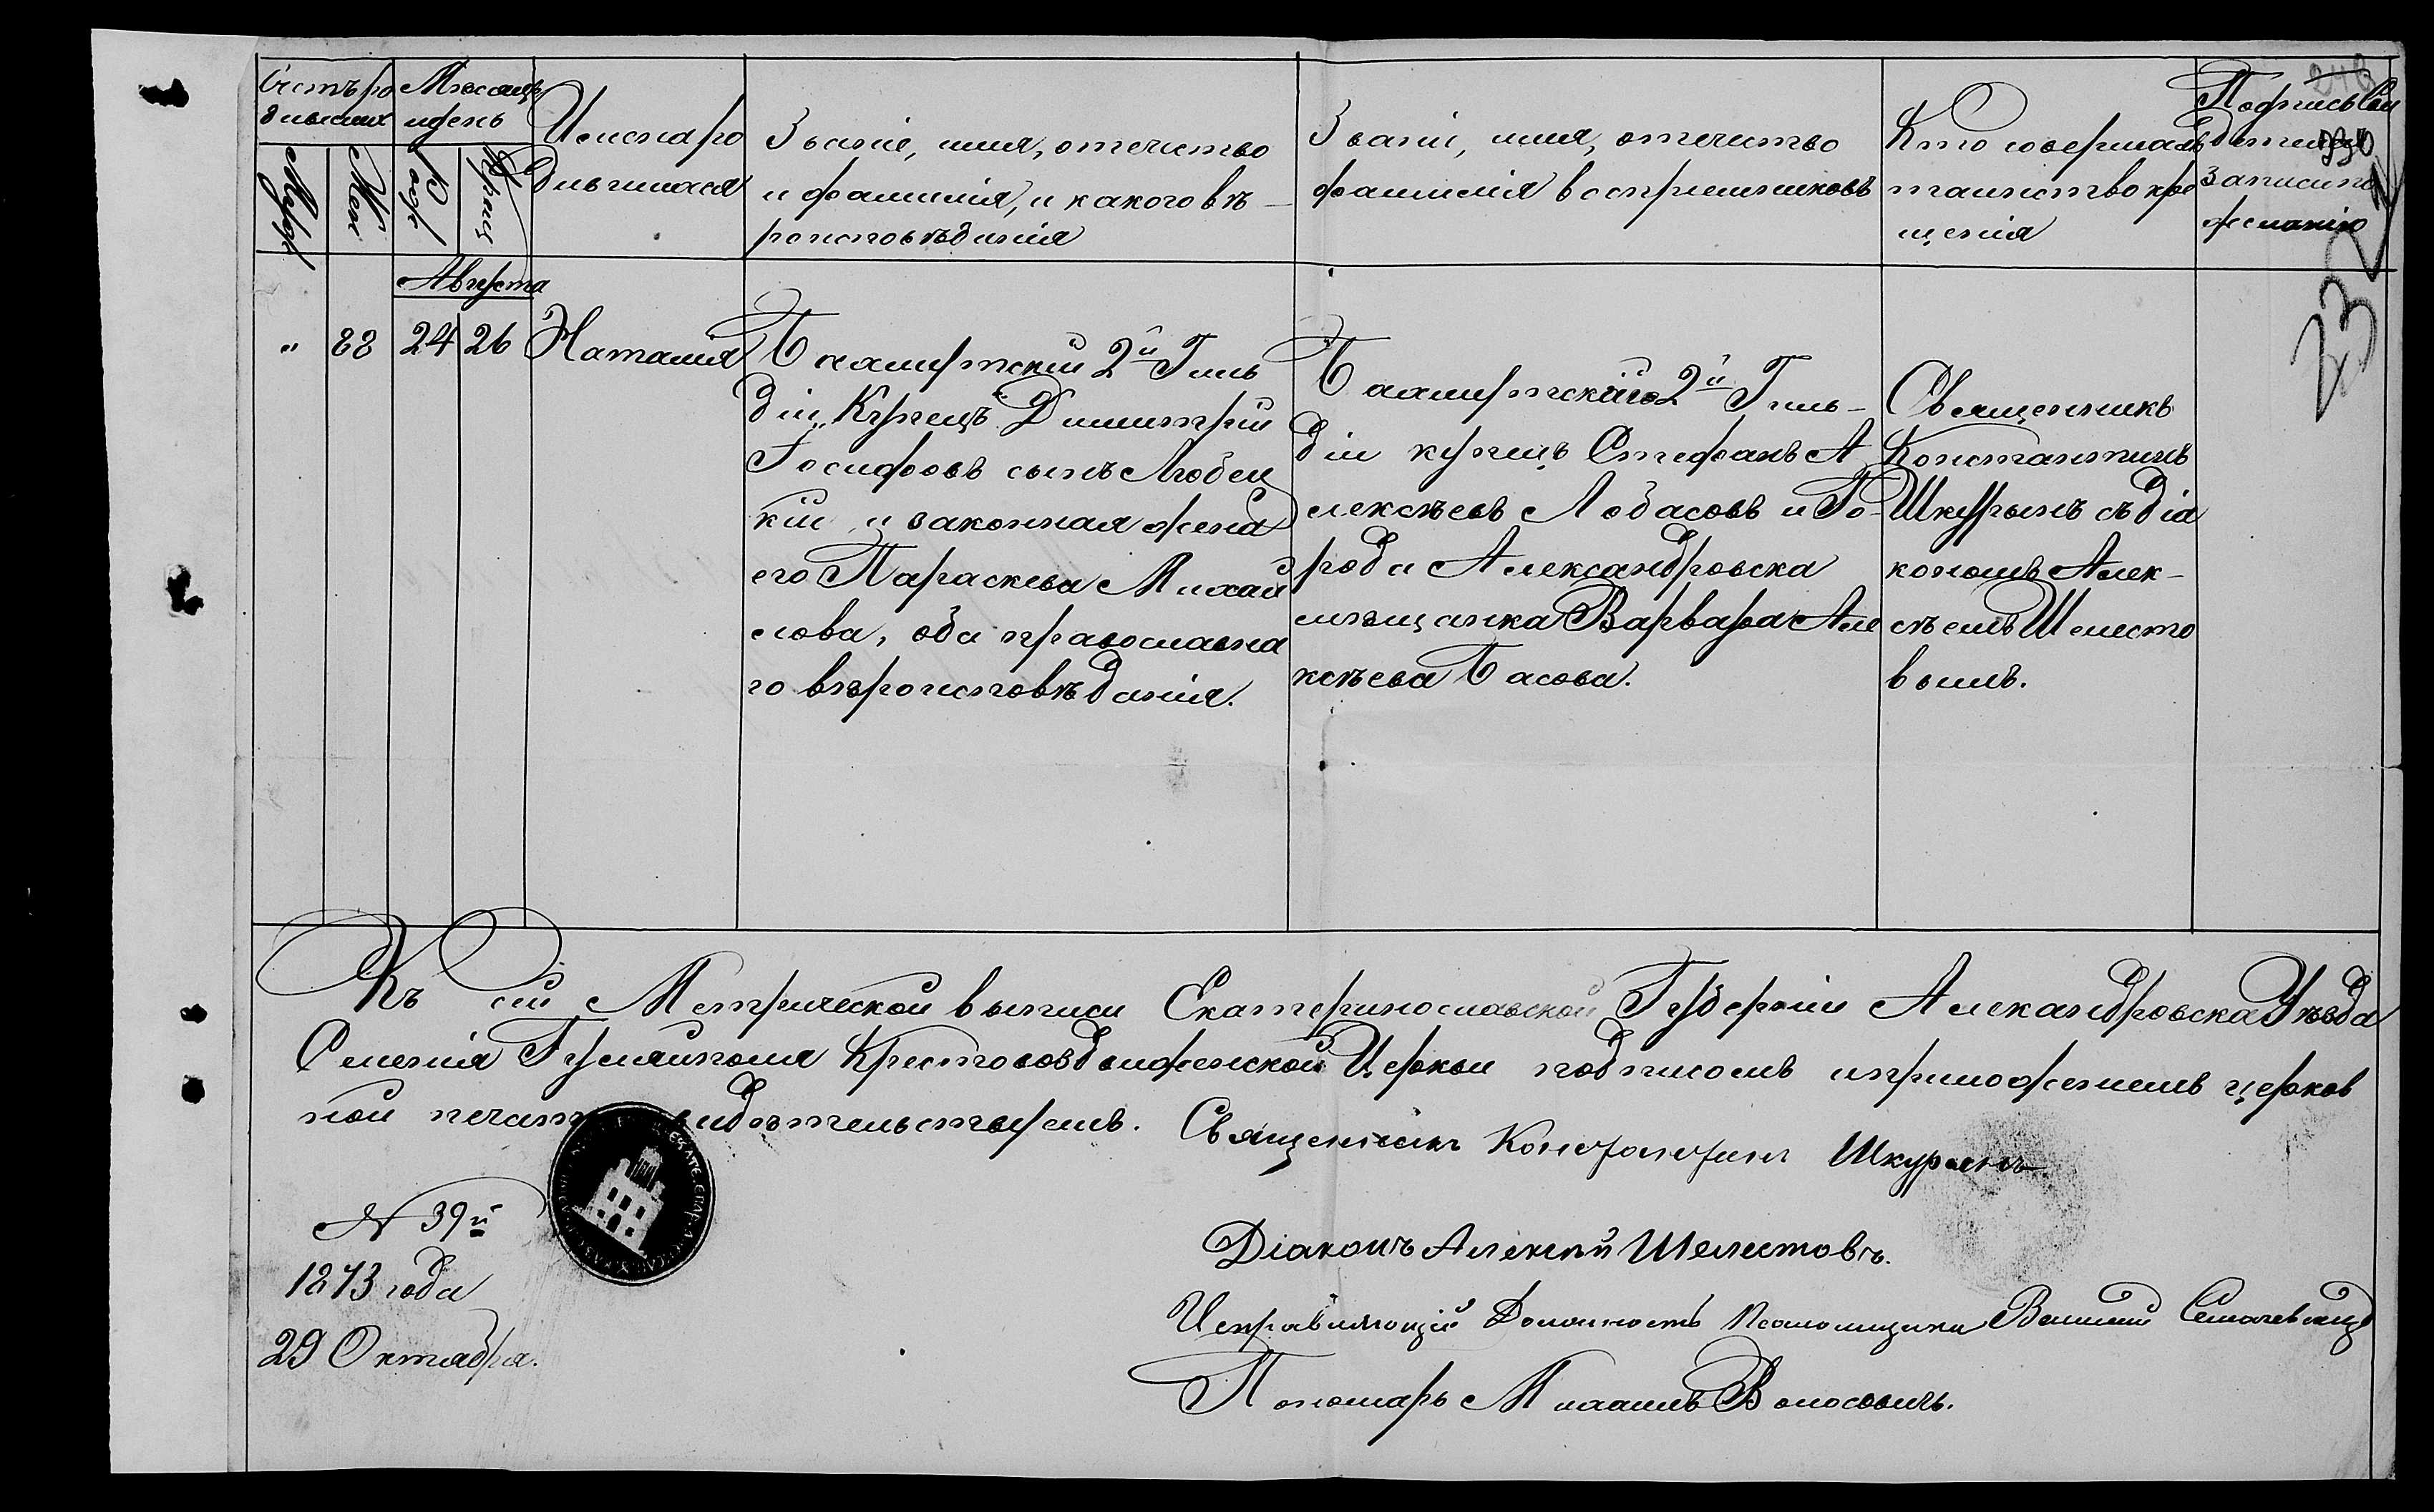 Счетъ ро
дившихся
Муж
Жен
Мѣсяцъ
и день
Рожд
Крещ
Имена ро
дившихся
Званіе, имя, отечество
и фамилія, и какого вѣ-
роисповѣданія
Званіи, имя, отечество
фамилія воспріемниковъ
Кто совершалъ
таинство кре
щенія
Подпись сви
дѣтелей
записи по
желанію
232
Августа
" 88 24 26 Наталія
Бахмутскій 2й Гиль
діи Купецъ Димитрій
Іосифовъ сынъ Любец
кій и законная жена
его Параскева Михай
лова, оба православна
го вѣроисповѣданія.
Бахмутскій 2й Гиль-
діи купецъ Стефанъ А
лексѣевъ Лобасовъ и Го-
рода Александровска
мѣщанка Варвара Але
ксѣева Басова.
Священникъ
Константинъ
Шкурынъ съ діа
кономъ Алек-
сѣемъ Шелесто
вымъ.
Къ сей Метрической выписи Екатеринославской Губерніи Александровска Уѣзда
Селенія Гуляйполя Крестовоздвиженской Церкви подписомъ и приложеніемъ церков
ной печати свидѣтельствуемъ. Священникъ Константинъ Шкурынъ
N 39й
1873 года
29 Октября.
Діаконъ Алексѣй Шелестовъ.
Исправляющій Должность Псаломщика
Пономарь Михаилъ Волосовичъ.